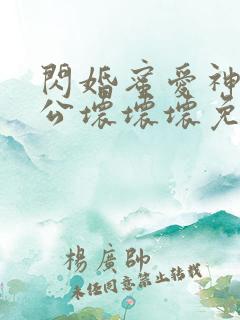 閃婚蜜愛神
公壞壞壞免
楊廣帥
未任同意禁止转载